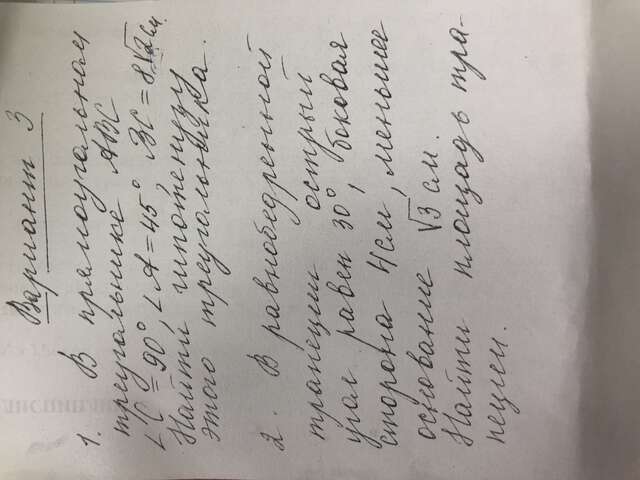 Вариант 3
1. В прямоугольном
треугольнике ABC
∠C = 90°, ∠A = 45°, BC = 8√2 см.
Найти гипотенузу
этого треугольника.
2. В равнобедренной
трапеции острый
угол равен 30°, боковая
сторона 4 см, меньшее
основание √3 см.
Найти площадь тра-
пеции.